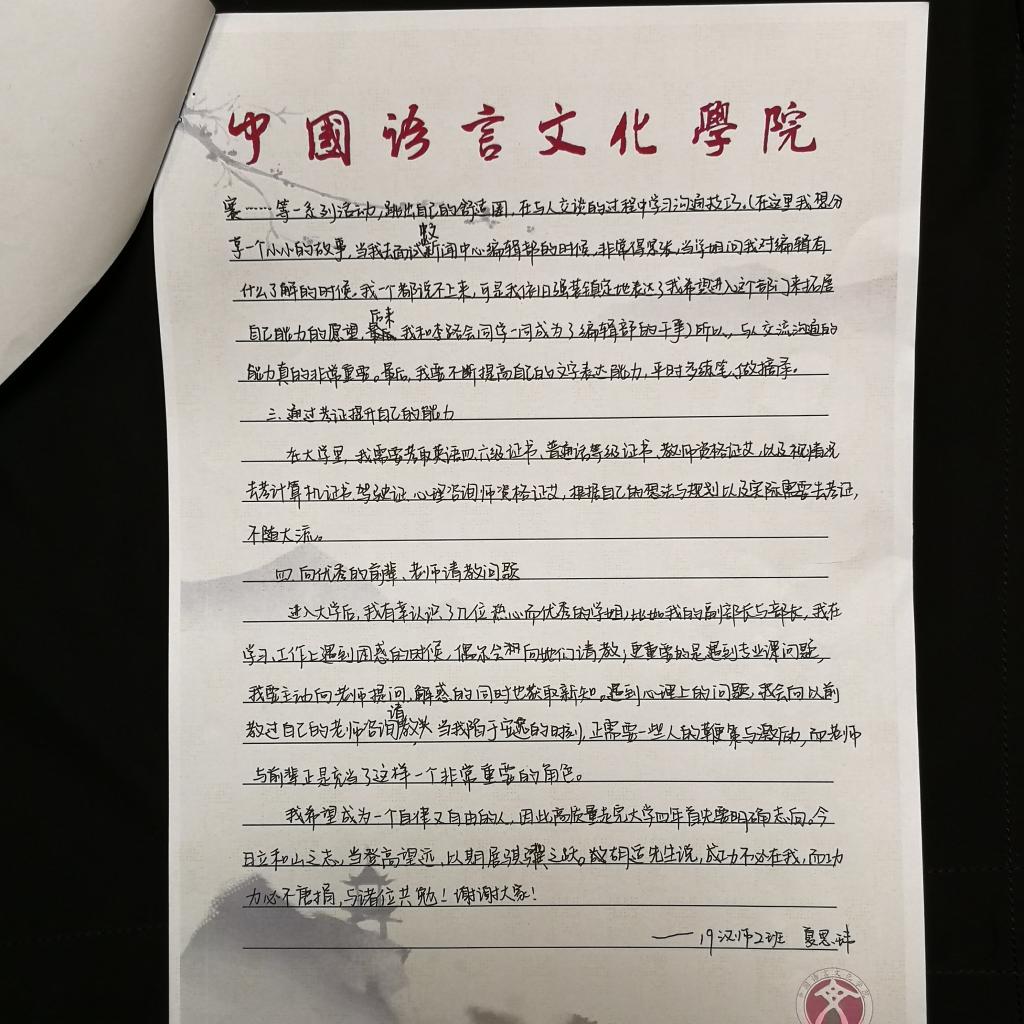 中國语言文化學院
赛……等一系列活动,跳出自己的舒适圈,在与人交谈的过程中学习沟通技巧。(在这里我想分
享一个小小的故事,当我去面试校新闻中心编辑部的时候,非常得紧张,当学姐问我对编辑有
什么了解的时候,我一个都说不上来,可是我依旧强装镇定地表达了我希望进入这个部门来拓展
自己能力的愿望,后来我和李路会同学一同成为了编辑部的干事)所以,与人交流沟通的
能力真的非常重要。最后,我要不断提高自己的文字表达能力,平时多练笔,做摘录。
三、通过考证提升自己的能力
在大学里,我需要考取英语四六级证书、普通话等级证书、教师资格证书,以及视情况
去考计算机证书、驾驶证、心理咨询师资格证书,根据自己的想法与规划以及实际需要去考证,
不随大流。
四、向优秀的前辈、老师请教问题
进入大学后,我有幸认识了几位热心而优秀的学姐,比如我的副部长与部长,我在
学习、工作上遇到困惑的时候,偶尔会向她们请教;更重要的是遇到专业课问题,
我要主动向老师提问,解惑的同时也获取新知。遇到心理上的问题,我会向以前
教过自己的老师咨询请教,当我陷于安逸的时刻,正需要一些人的鞭策与激励,而老师
与前辈正是充当了这样一个非常重要的角色。
我希望成为一个自律又自由的人,因此高质量走完大学四年首先要明确志向。今
日立和山之志,当登高望远,以期展骐骥之跃。故胡适先生说,成功不必在我,而功
力必不唐捐,与诸位共勉!谢谢大家!
——19汉师2班 夏思